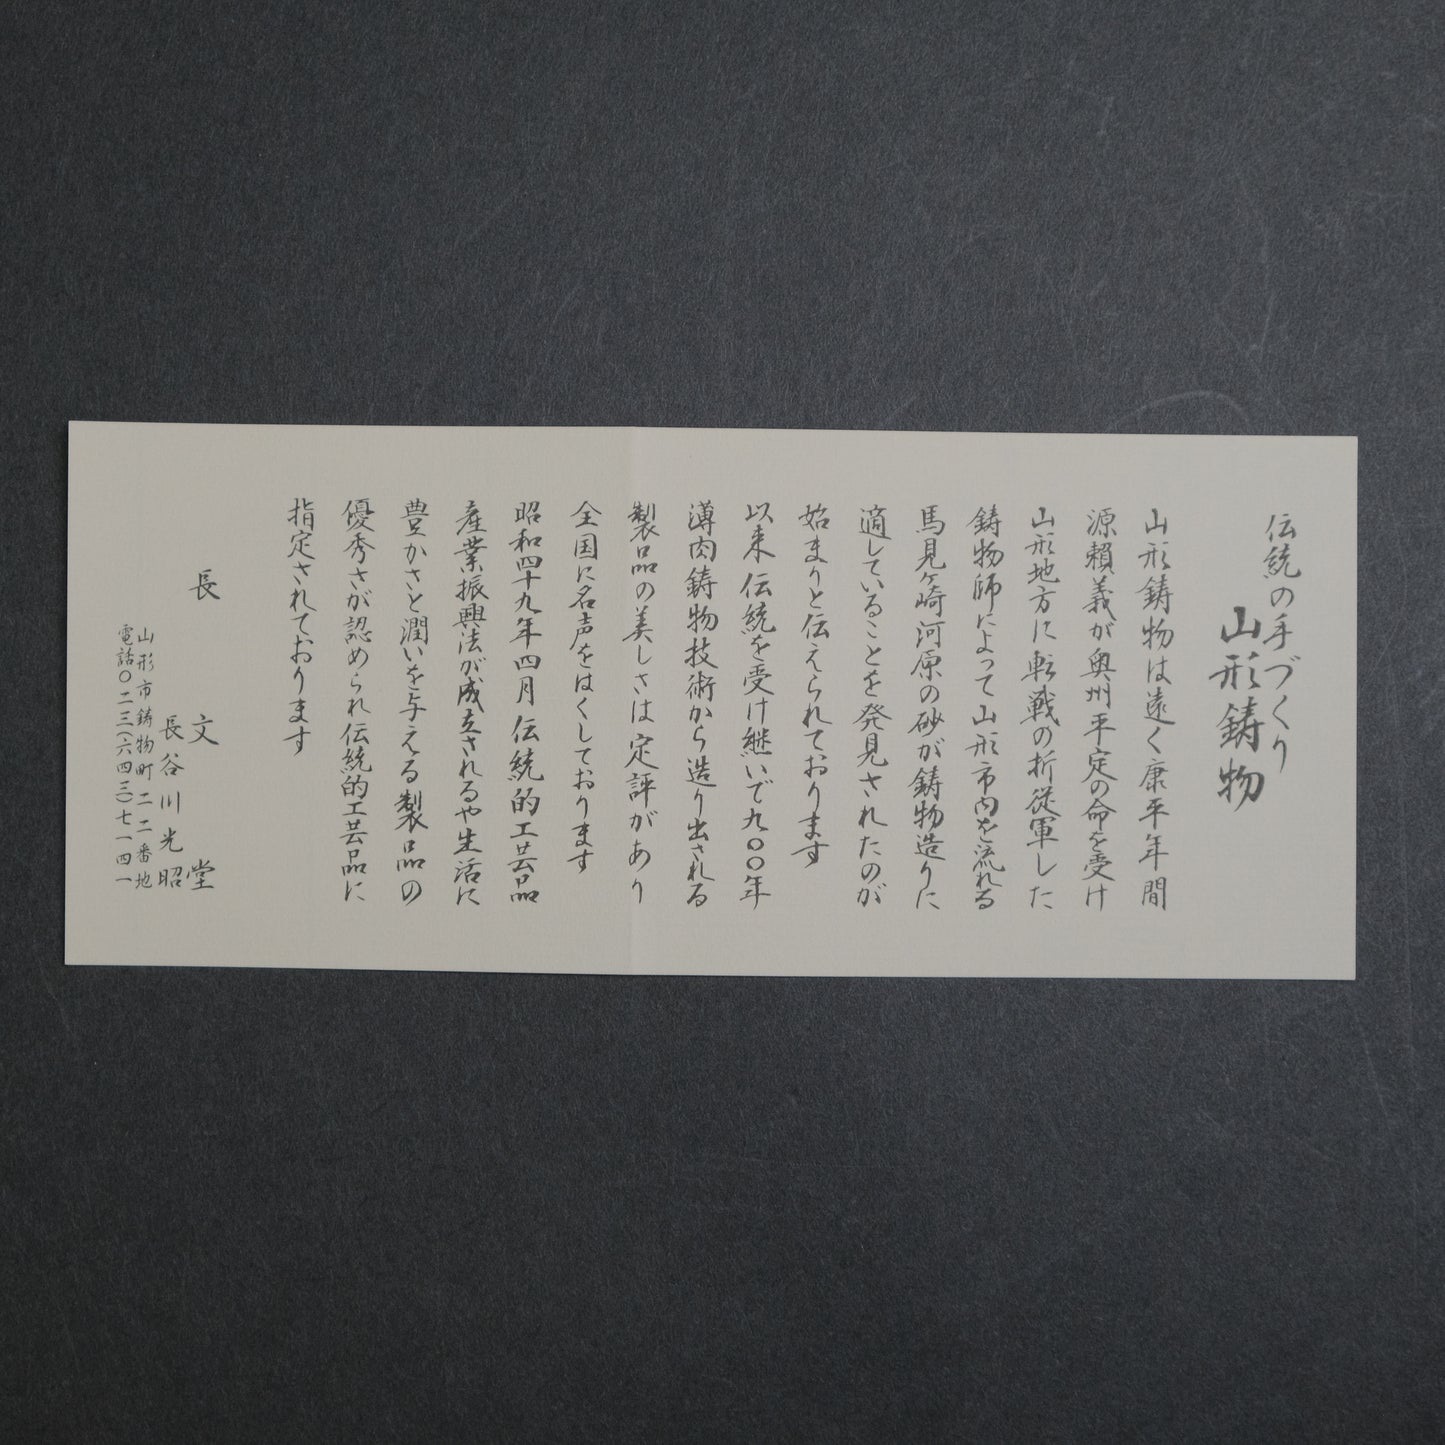 伝統の手づくり
山形鋳物
山形鋳物は遠く康平年間
源頼義が奥州平定の命を受け
山形地方に転戦の折従軍した
鋳物師によって山形市内を流れる
馬見ヶ崎河原の砂が鋳物造りに
適していることを発見されたのが
始まりと伝えられております
以来伝統を受け継いで九〇〇年
薄肉鋳物技術から造り出される
製品の美しさは定評があり
全国に名声をはくしております
昭和四十九年四月伝統的工芸品
産業振興法が成立されるや生活に
豊かさと潤いを与える製品の
優秀さが認められ伝統的工芸品に
指定されております
長文堂
長谷川光昭
山形市鋳物町二二番地
電話〇二三(六四三)七一四一